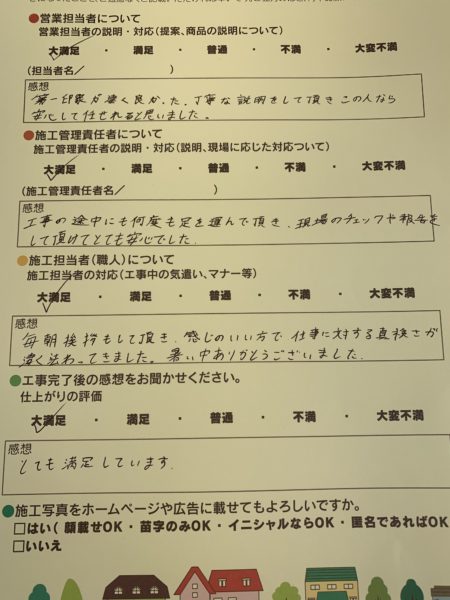 ●営業担当者について
営業担当者の説明・対応(提案、商品の説明について)
大満足 ・ 満足 ・ 普通 ・ 不満 ・ 大変不満
(担当者名／ )
感想
第一印象が凄く良かった。丁寧な説明をして頂きこの人なら
安心して任せれると思いました。
●施工管理責任者について
施工管理責任者の説明・対応(説明、現場に応じた対応ついて)
大満足 ・ 満足 ・ 普通 ・ 不満 ・ 大変不満
(施工管理責任者名／ )
感想
工事の途中にも何度も足を運んで頂き、現場のチェックや報告を
して頂けてとても安心でした。
●施工担当者(職人)について
施工担当者の対応(工事中の気遣い、マナー等)
大満足 ・ 満足 ・ 普通 ・ 不満 ・ 大変不満
感想
毎朝挨拶もして頂き、感じのいい方で仕事に対する真摯さが
凄く伝わってきました。暑い中ありがとうございました。
●工事完了後の感想をお聞かせください。
仕上がりの評価
大満足 ・ 満足 ・ 普通 ・ 不満 ・ 大変不満
感想
とても満足しています。
●施工写真をホームページや広告に載せてもよろしいですか。
□はい( 顔載せOK ・ 苗字のみOK ・ イニシャルならOK ・ 匿名であればOK
□いいえ